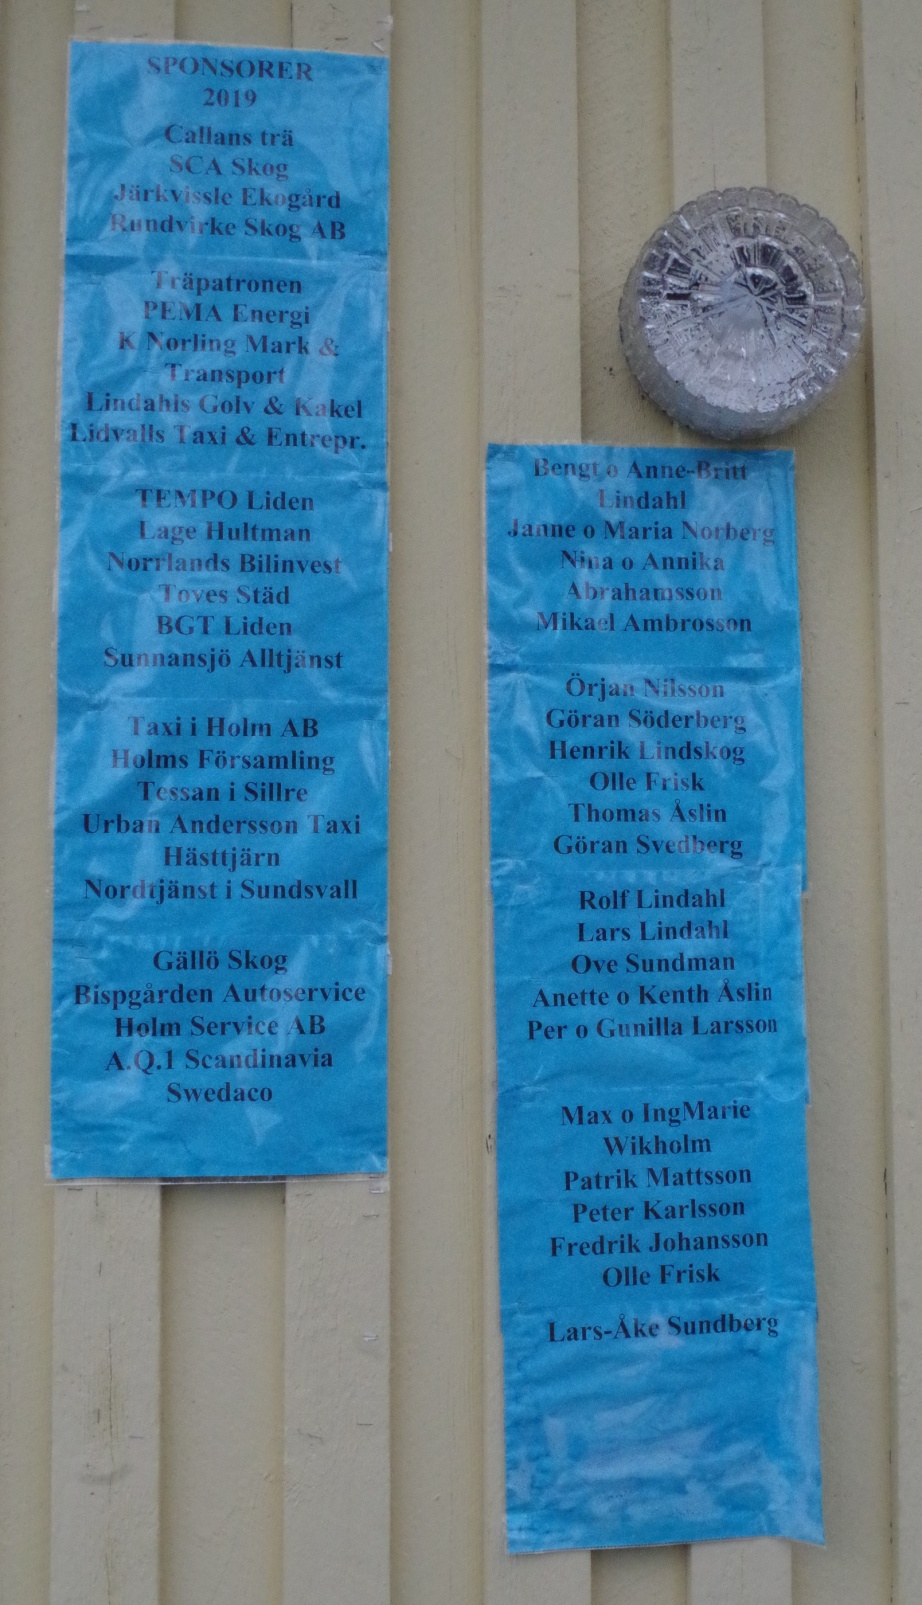 SPONSORER
2019
Callans trä
SCA Skog
Järkvissle Ekogård
Rundvirke Skog AB
Träpatronen
PEMA Energi
K Norling Mark &
Transport
Lindahls Golv & Kakel
Lidvalls Taxi & Entrepr.
TEMPO Liden
Lage Hultman
Norrlands Bilinvest
Toves Städ
BGT Liden
Sunnansjö Alltjänst
Taxi i Holm AB
Holms Församling
Tessan i Sillre
Urban Andersson Taxi
Hästtjärn
Nordtjänst i Sundsvall
Gällö Skog
Bispgården Autoservice
Holm Service AB
A.Q.1 Scandinavia
Swedaco
Bengt o Anne-Britt
Lindahl
Janne o Maria Norberg
Nina o Annika
Abrahamsson
Mikael Ambrosson
Örjan Nilsson
Göran Söderberg
Henrik Lindskog
Olle Frisk
Thomas Åslin
Göran Svedberg
Rolf Lindahl
Lars Lindahl
Ove Sundman
Anette o Kenth Åslin
Per o Gunilla Larsson
Max o IngMarie
Wikholm
Patrik Mattsson
Peter Karlsson
Fredrik Johansson
Olle Frisk
Lars-Åke Sundberg